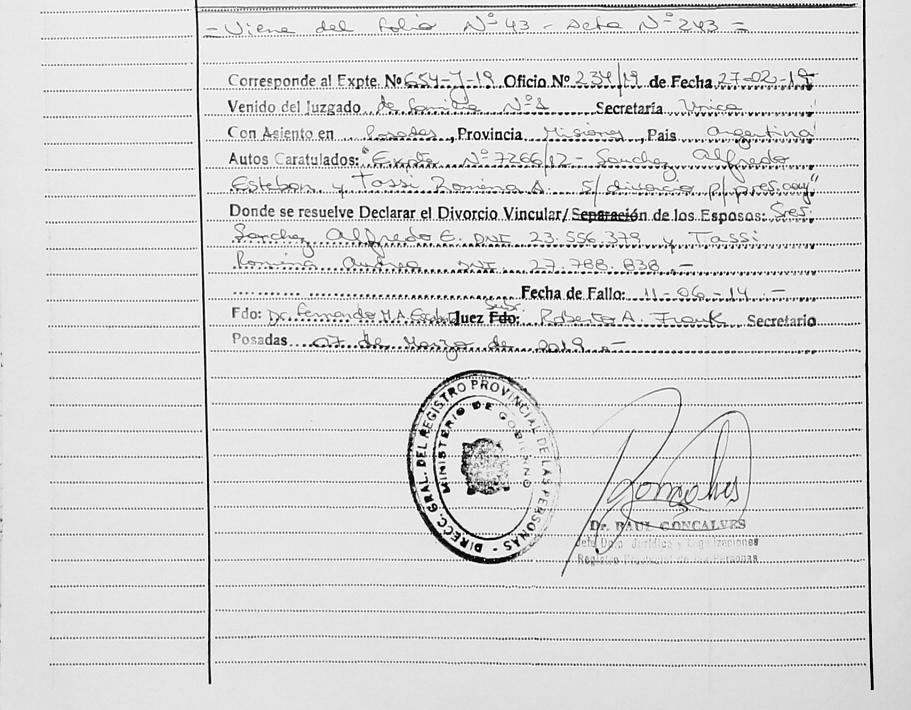 - Viene del folio Nº 43 - Acta Nº 243 -
Corresponde al Expte. Nº 654-J-19 Oficio Nº 234/19 de Fecha 27-02-19
Venido del Juzgado de Familia Nº1 Secretaría Unica
Con Asiento en Posadas, Provincia Misiones, Pais Argentina
Autos Caratulados: "Expte Nº 7266/12 - Sanchez Alfredo
Esteban y Tassi Romina A. S/divorcio p/pres.conj"
Donde se resuelve Declarar el Divorcio Vincular/Separación de los Esposos: Sres.
Sanchez Alfredo E. DNI 23.556.379 y Tassi
Romina Andrea DNI 27.788.838.-
Fecha de Fallo: 11-06-14.-
Fdo: Dr. Fernando M.A. Juez Fdo: Roberto A. Frank Secretario
Posadas 07 de Marzo de 2019.-
DIRECC. GRAL. DEL REGISTRO PROVINCIAL DE LAS PERSONAS -
MINISTERIO DE GOBIERNO
Dr. RAUL GONCALVES
Jefe Dpto. Jurídico y Legalizaciones
Registro Provincial de las Personas